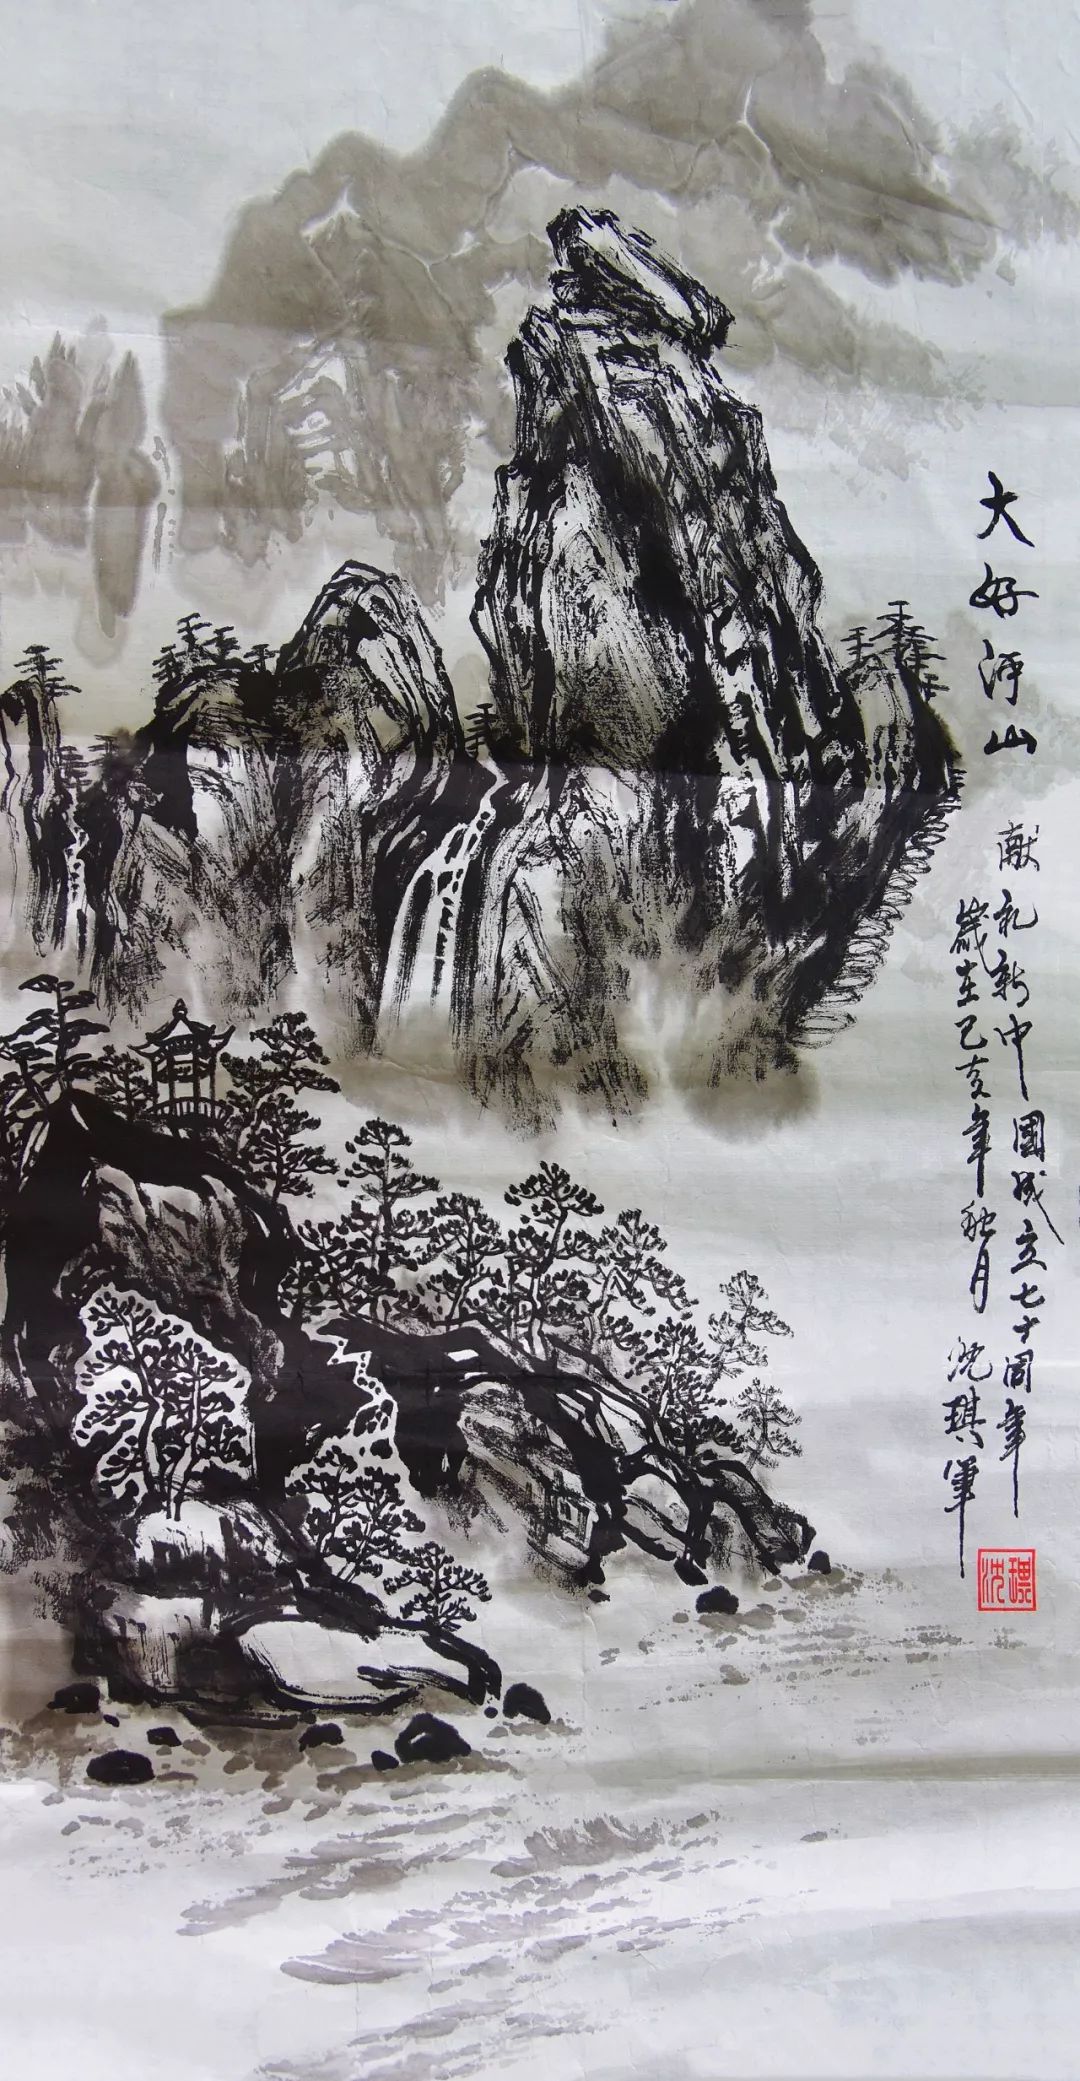 大好河山
献礼新中國成立七十周年
歲在己亥年秋月 沈琪笔
沈琪